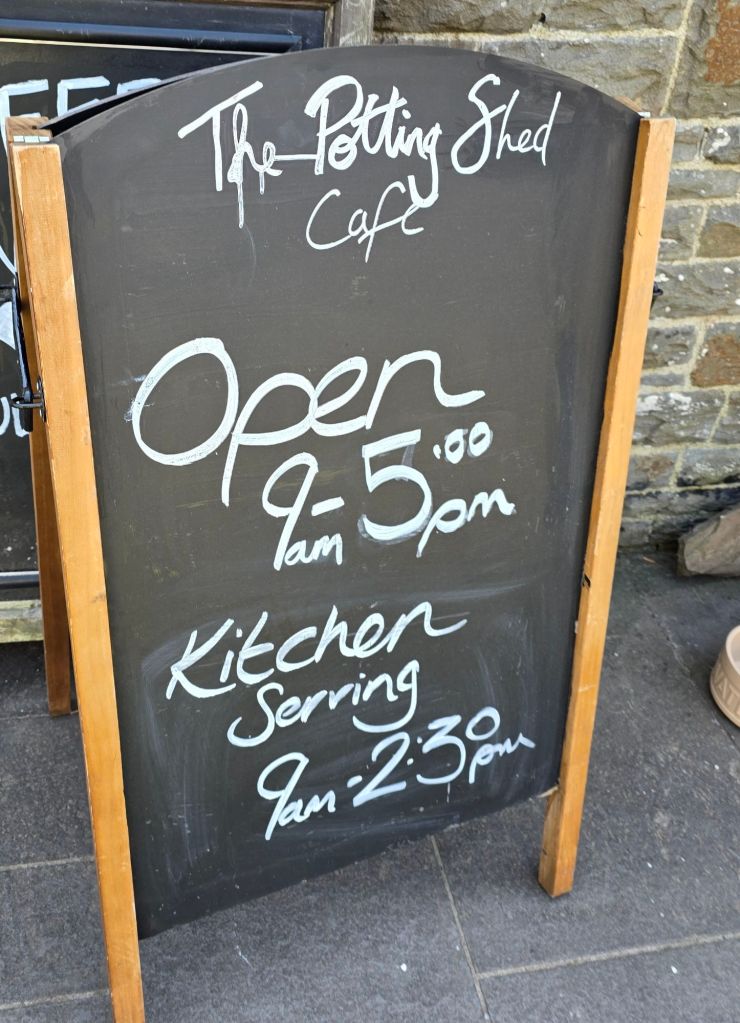 The Potting Shed
Café
Open
9am - 5:00pm
Kitchen
Serving
9am - 2:30pm